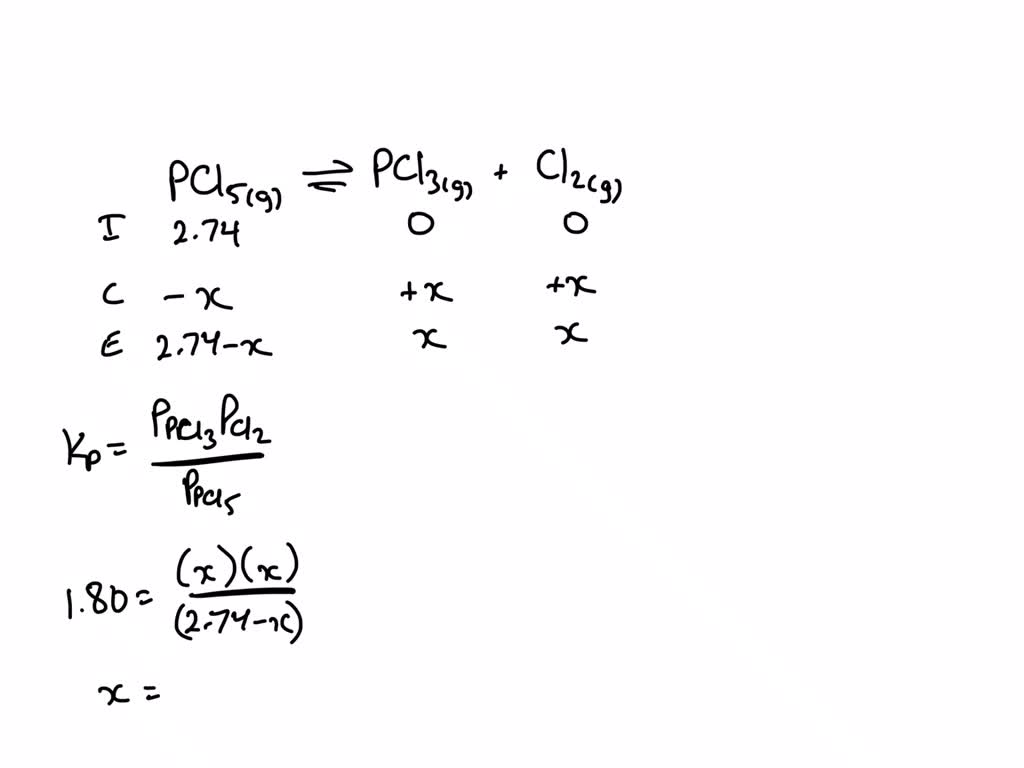 PCl₅(g) ⇌ PCl₃(g) + Cl₂(g)
I 2.74 0 0
C -x +x +x
E 2.74-x x x
Kp = PPCl₃PCl₂ / PPCl₅
1.80 = (x)(x) / (2.74-x)
x =